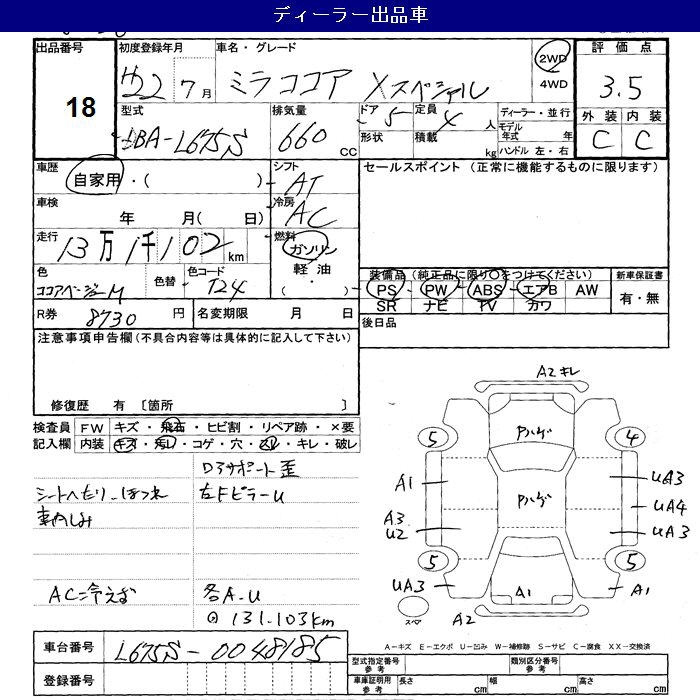 ディーラー出品車
出品番号 初度登録年月 車名・グレード 2WD 評価点
18 H22 7月 ミラココア Xスペシャル 4WD 3.5
型式 排気量 ドア 5 定員 4人 ディーラー・並行 外装 内装
DBA-L675S 660 CC 形状 積載 kg モデル年式 年 C C
ハンドル 左・右
車歴 シフト セールスポイント (正常に機能するものに限ります)
自家用・( ) AT
車検 冷房
年 月( 日) AC
走行 燃料
13万1千102km ガソリン
色 色替 色コード 軽油 装備品(純正品に限り○をつけてください) 新車保証書
ココアベージュM T24 ・( ) PS PW ABS エアB AW 有・無
R券 8730円 名変期限 月 日 SR ナビ TV カワ
後日品
注意事項申告欄(不具合内容等は具体的に記入して下さい)
修復歴 有 〔箇所 〕
検査員 FW キズ・飛石・ヒビ割・リペア跡・×要
記入欄 内装 キズ・汚レ・コゲ・穴・スレ・キレ・破レ
Dアサポート歪
シートヘたり、ほつれ 左Fピラーu
車内しみ
AC冷えず 各A.u
131.103km
A2キレ
5 Pハゲ 4
A1 Pハゲ UA3
UA4
A3 U2 UA3
5 5
UA3 A1 A1
スペア A2
A-キズ E-エクボ U-凹み W-補修跡 S-サビ C-腐食 XX-交換済
車台番号 L675S-0048185
型式指定番号 参考 類別区分番号 参考
登録番号 車庫証明用 参考 長さ cm 幅 cm 高さ cm